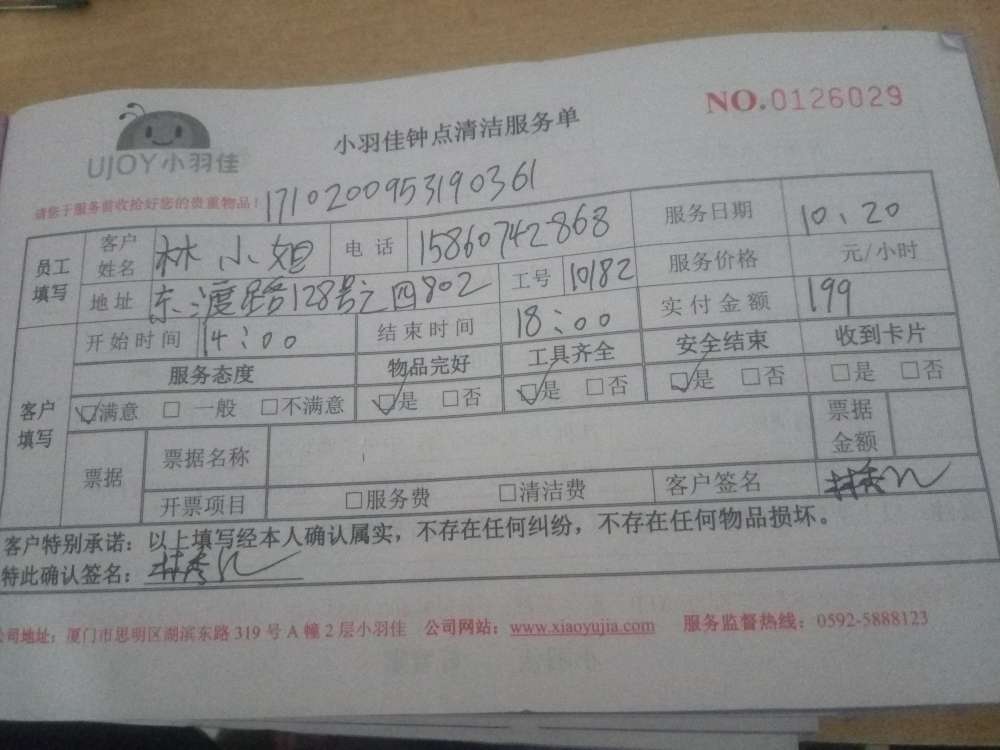 NO.0126029
小羽佳钟点清洁服务单
UJOY小羽佳
请您于服务前收拾好您的贵重物品！ 1710200953190361
员工填写 客户姓名 林小姐 电话 15860742868 服务日期 10.20
地址 东渡路128号之四802 工号 10182 服务价格 元/小时
开始时间 14:00 结束时间 18:00 实付金额 199
客户填写 服务态度 物品完好 工具齐全 安全结束 收到卡片
☑满意 □一般 □不满意 ☑是 □否 ☑是 □否 ☑是 □否 □是 □否
票据 票据名称 票据金额
开票项目 □服务费 □清洁费 客户签名
客户特别承诺：以上填写经本人确认属实，不存在任何纠纷，不存在任何物品损坏。
特此确认签名：
公司地址：厦门市思明区湖滨东路319号A幢2层小羽佳 公司网站：www.xiaoyujia.com 服务监督热线：0592-5888123